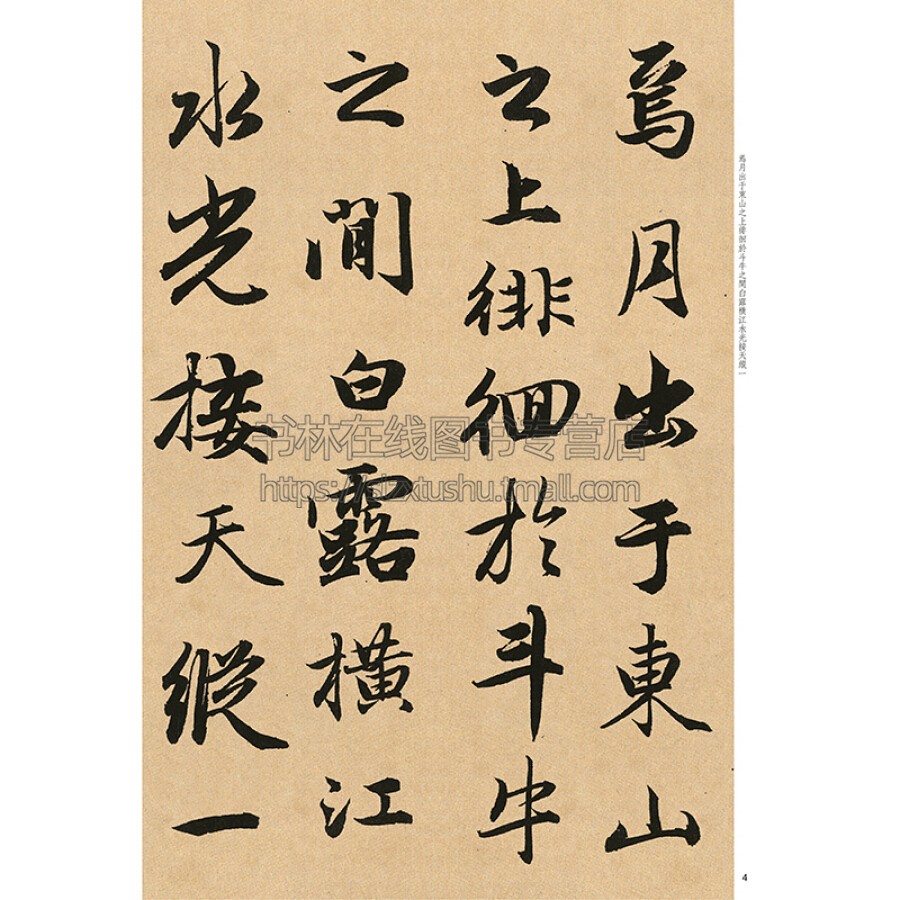 焉月出于東山
之上徘徊於斗牛
之間白露橫江
水光接天縱一
焉月出于東山之上徘徊於斗牛之間白露橫江水光接天縱一
书林在线图书专营店
https://slzxtushu.tmall.com
4